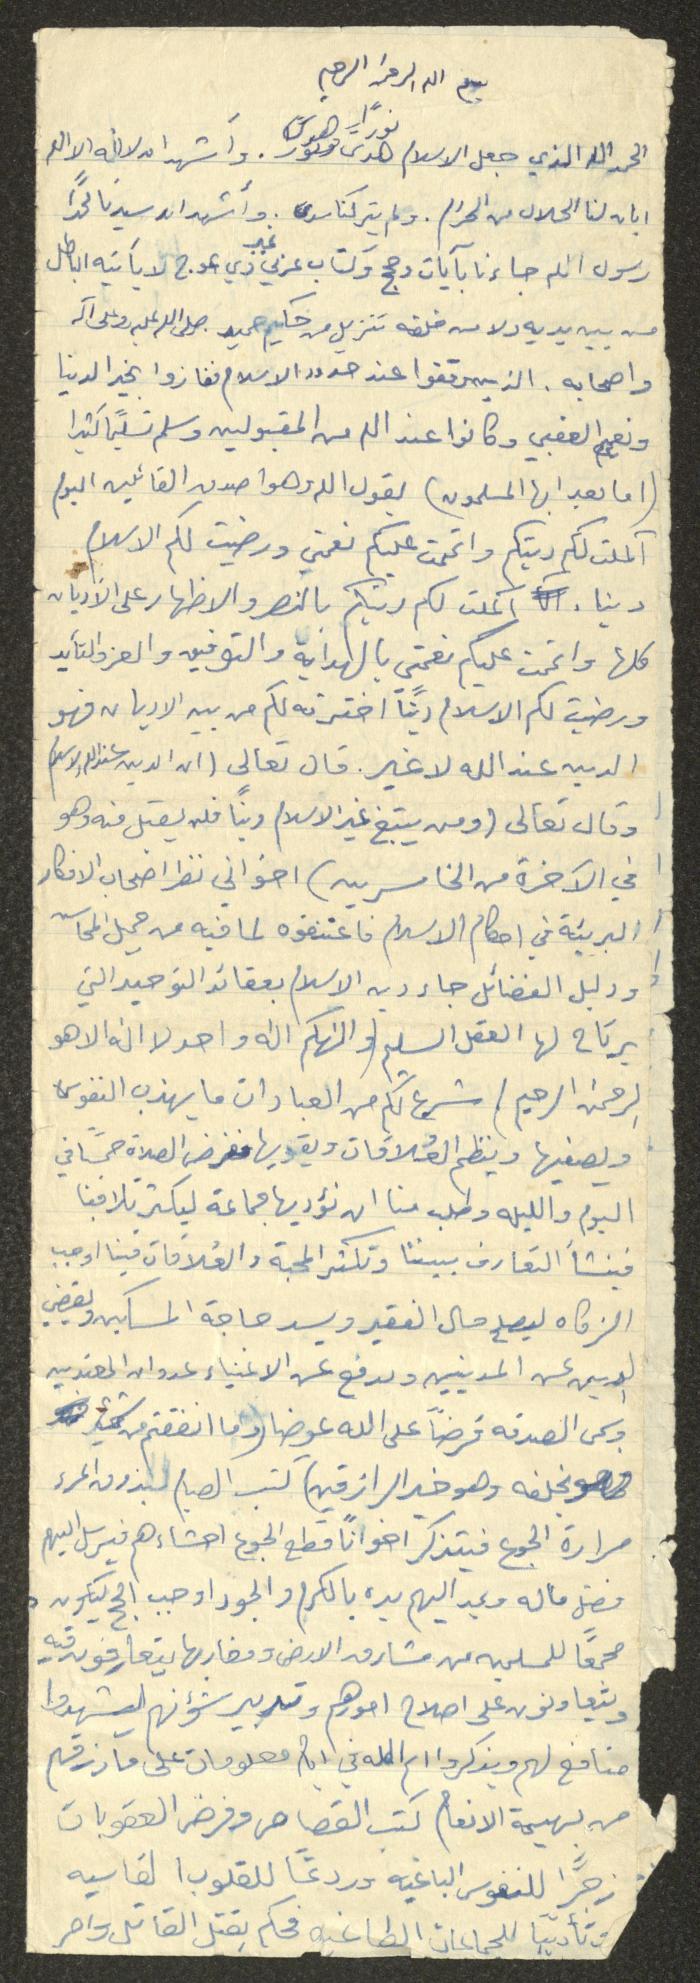 بسم الله الرحمن الرحيم
نورًا وهدى
الحمد لله الذي جعل الاسلام هدى ونور. وأشهد ان لا اله الا الله
ابان لنا الحلال من الحرام. ولم يتركنا سدى. وأشهد ان سيدنا محمدًا
رسول الله جاءنا بآيات وحجج وكتاب عربي غير ذي عوج لا يأتيه الباطل
من بين يديه ولا من خلفه تنزيل من حكيم حميد. صلى الله عليه وعلى آله
واصحابه. الذين وقفوا عند حدود الاسلام ففازوا بخير الدنيا
ونعيم العقبي وكانوا عند الله من المقبولين وسلم تسليمًا كثيرا
(اما بعد ايها المسلمون) يقول الله وهو اصدق القائلين اليوم
اكملت لكم دينكم واتممت عليكم نعمتي ورضيت لكم الاسلام
دينا. اكملت لكم دينكم بالنصر والاظهار على الأديان
كلها واتممت عليكم نعمتي بالهداية والتوفيق والعز والتأييد
ورضيت لكم الاسلام دينًا اخترته لكم من بين الاديان فهو
الدين عند الله لا غير. قال تعالى (ان الدين عند الله الاسلام
وقال تعالى (ومن يبتغ غير الاسلام دينًا فلن يقبل منه وهو
في الآخرة من الخاسرين) اخواني نظر اصحاب الافكار
البريئة في احكام الاسلام فاعتنقوه لما فيه من جميل المحاسن
ودليل الفضائل جاء دين الاسلام بعقائد التوحيد التي
يرتاح لها العقل السليم (والهكم اله واحد لا اله الا هو
الرحمن الرحيم) شرع لكم من العبادات ما يهذب النفوس
ويصفيها وينظم العلاقات ويقويها ففرض الصلاة خمسًا في
اليوم والليله وطلب منا ان نؤديها جماعة ليكثر تلاقينا
فينشأ التعارف بيننا وتكثر المحبة والعلاقات فينا اوجب
الزكاه ليصلح حال الفقير ويسد حاجة المسكين ويقضي
الدين عن المدينين ويدفع عن الاغنياء عدوان المعتدين
وسمى الصدقه قرضاً على الله عوضا (وما انفقتم من شيء
فهو يخلفه وهو خير الرازقين) كتب الصيام ليذوق المرء
مرارة الجوع فيتذكر اخوانًا قطع الجوع احشاءهم فيرسل اليهم
فضل ماله ويمد اليهم يده بالكرم والجود اوجب الحج ليكون
مجمعًا للمسلمين من مشارق الارض ومغاربها يتعارفون فيه
ويتعاونون على اصلاح امورهم وتدبير شؤنهم ليشهدوا
منافع لهم ويذكروا اسم الله في ايام معلومات على ما رزقهم
من بهيمة الانعام كتب القصاص وفرض العقوبات
زجرًا للنفوس الباغيه وردعًا للقلوب القاسيه
وتأديبًا للجماعات الطاغيه فحكم بقتل القاتل وامر